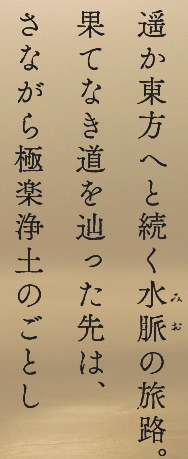 遥か東方へと続く水脈の旅路。
みお
果てなき道を辿った先は、
さながら極楽浄土のごとし